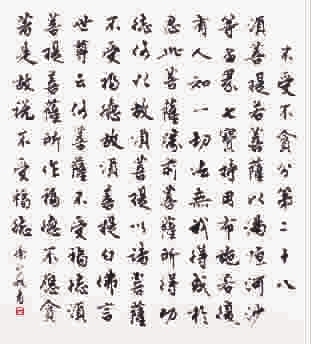 不受不貪分第二十八
須菩提若菩薩以滿恆河沙
等世界七寶持用布施若復
有人知一切法無我得成於
忍此菩薩勝前菩薩所得功
德何以故須菩提以諸菩薩
不受福德故須菩提白佛言
世尊云何菩薩不受福德須
菩提菩薩所作福德不應貪
著是故說不受福德